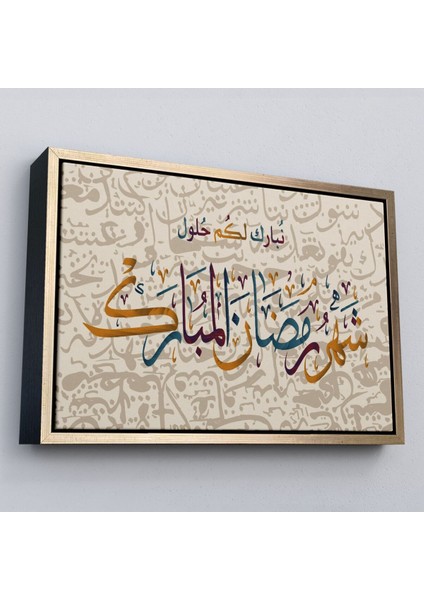 نُبارك لكُم حُلول
شَهْرُ رَمَضَانَ المُبَارَكْ